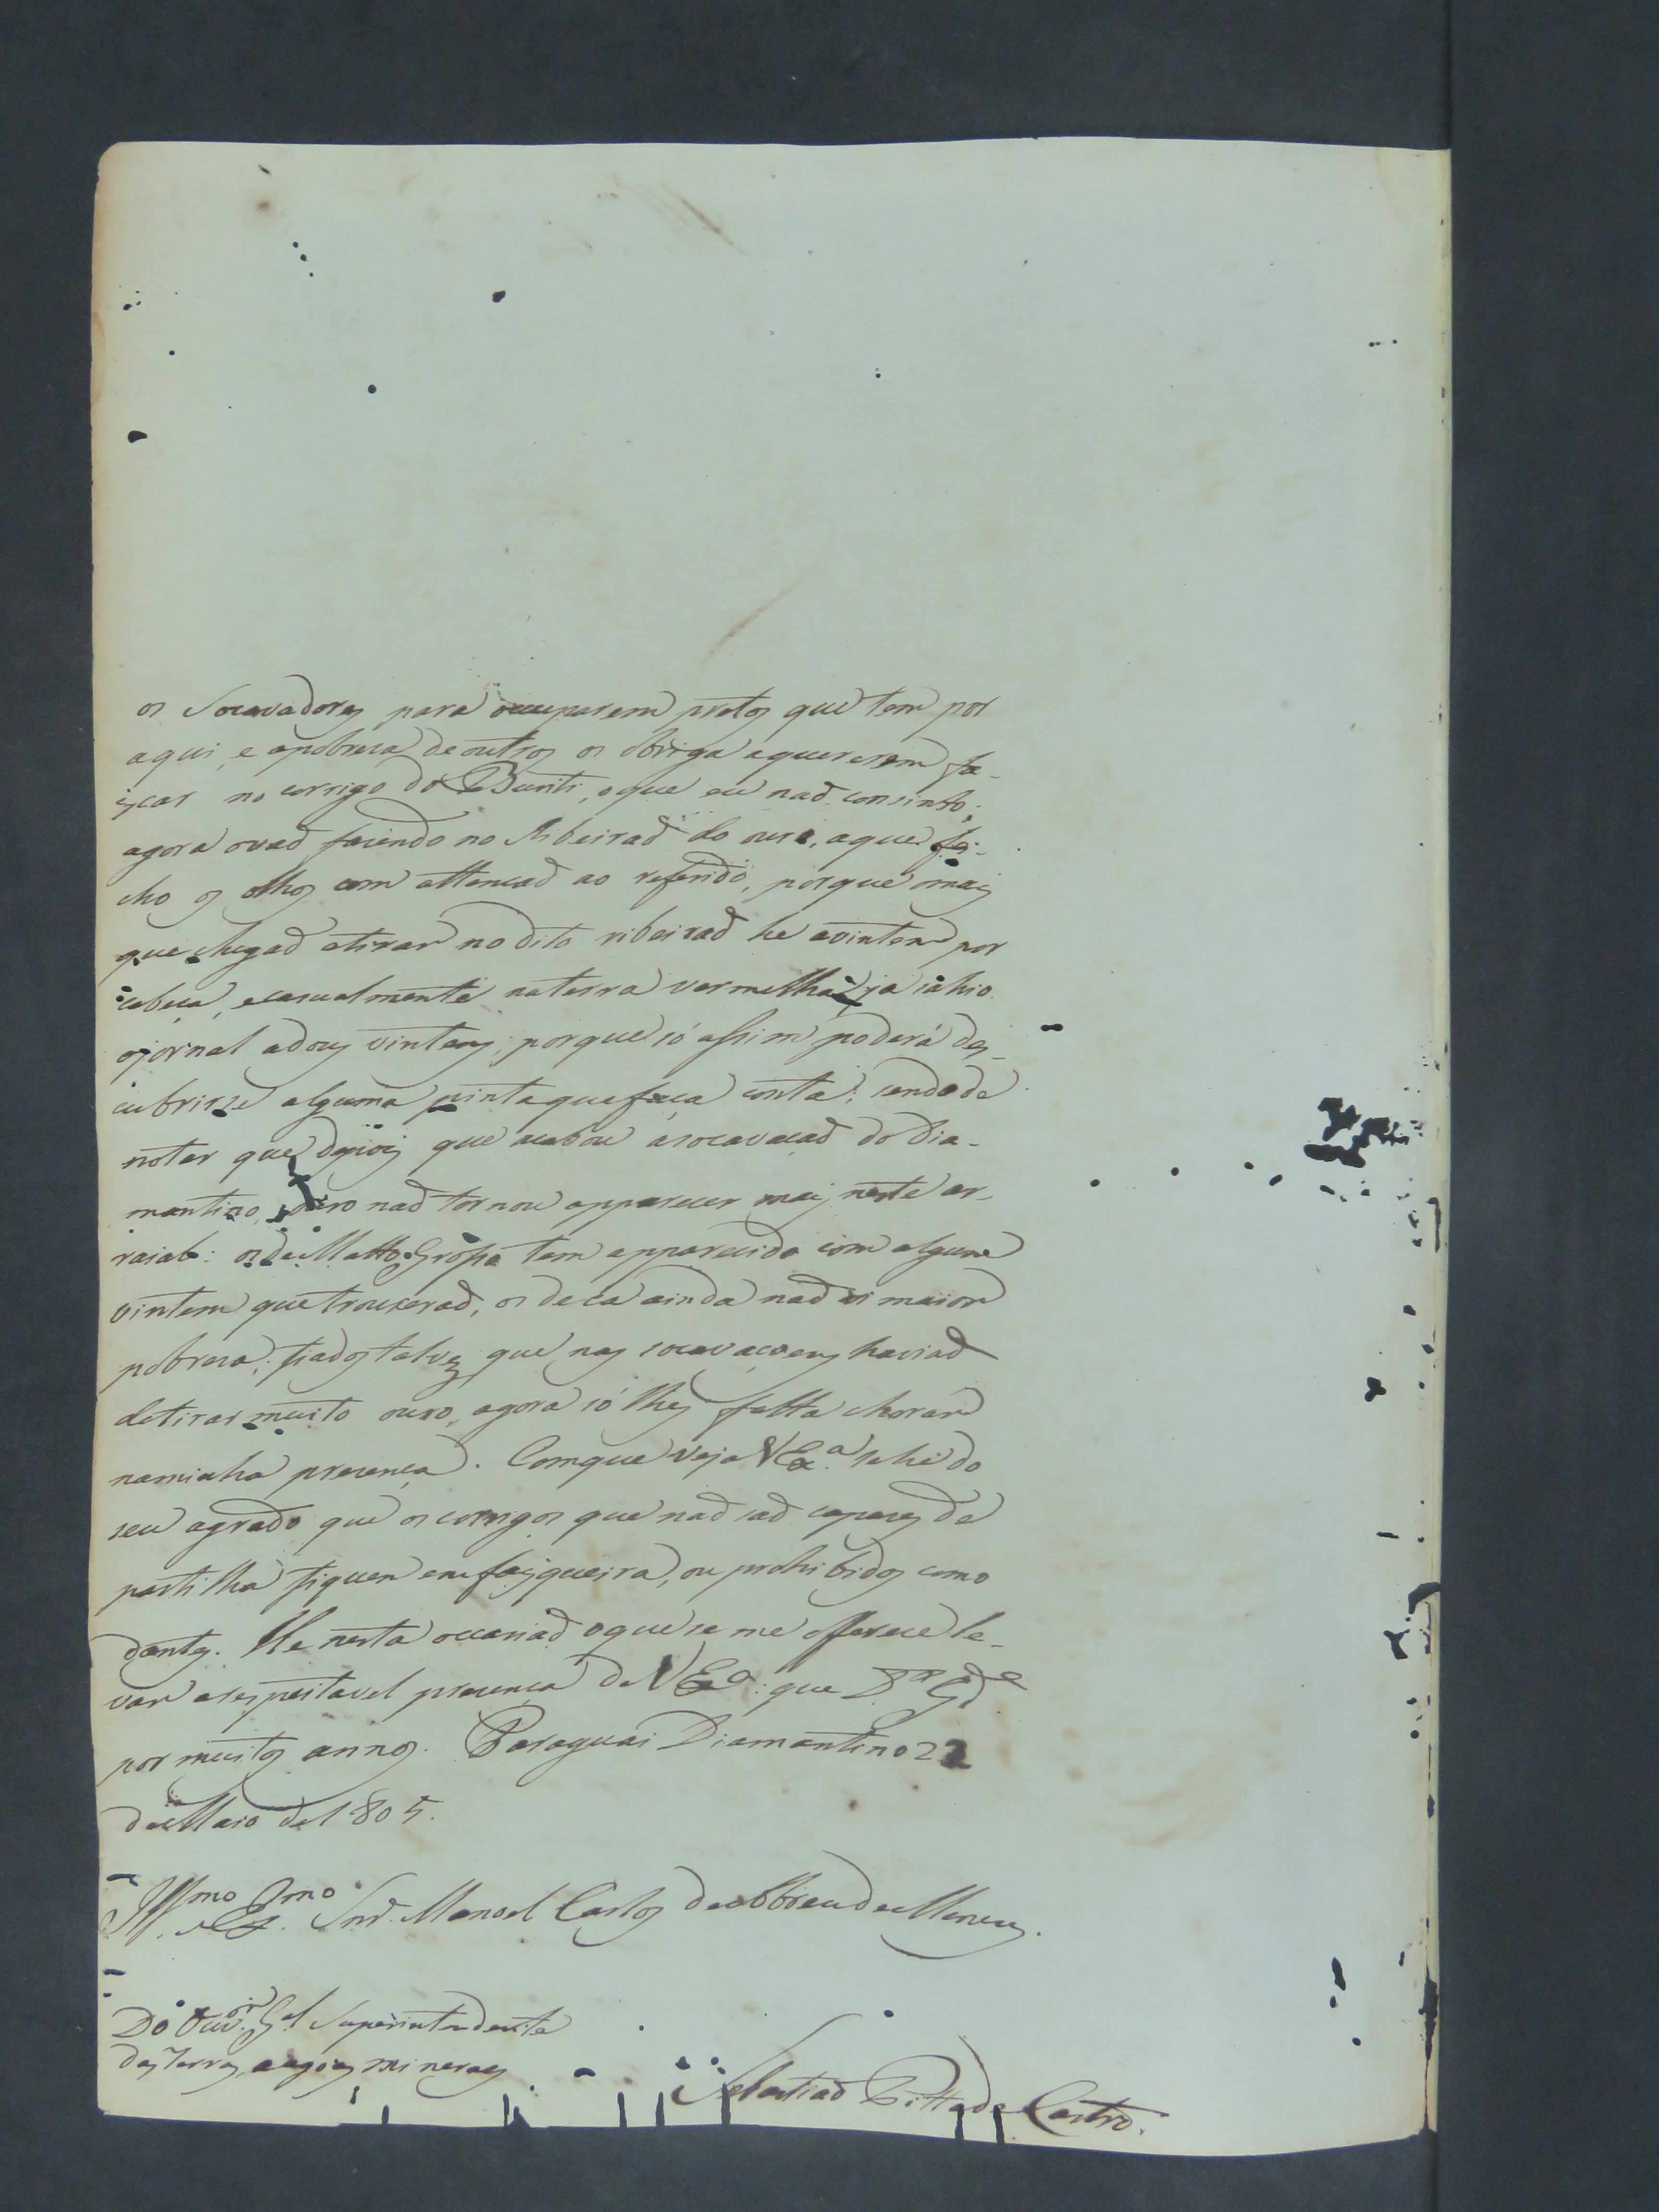 os Socavadores para occuparem pretos que tem por
aqui, e apobreza de outros os obriga a quererem fa-
iscar no corrigo do Buriti, o que eu naõ consinto;
agora ovaõ fasendo no Ribeiraõ do ouro, aque fe-
cho os olhos com attencaõ ao referido, porque omais
que chegaõ atirar no dito ribeiraõ he avintem por
cabeça, ecasualmente naterra vermelha já sahio
ojornal adous vintens; porque só assim poderá des-
cubrirse alguma pinta que faça conta; sendo de
notar que depois que acabou asocavacaõ do Dia-
mantino, ouro naõ tornou apparecer mais neste ar-
raial: os de Matto Grosso tem apparecido com algum
vintem que trouxeraõ, os de ca ainda naõ vi maior
pobresa; fiados talvez que nas socavacoens haviaõ
detirar muito ouro, agora só lhes falta chorar
naminha presença. Comque veja VEx.ª se he do
seu agrado que os corrigos que naõ saõ capases de
partilha fiquem em faisqueira, ou prohibidos como
dantes. He nesta occasiaõ oque se me offerece le-
var arespeitavel presença de VEx.ª: que D.s G.de
por muitos annos. Paraguai Diamantino 22
de Maio de 1805.
Ill.mo e Ex.mo Snr. Manoel Carlos de Abreu de Menezes.
Do Ouv.or G.al Superintendente
das Terras, e agoas mineraes
Sebastiaõ Pitta de Castro.